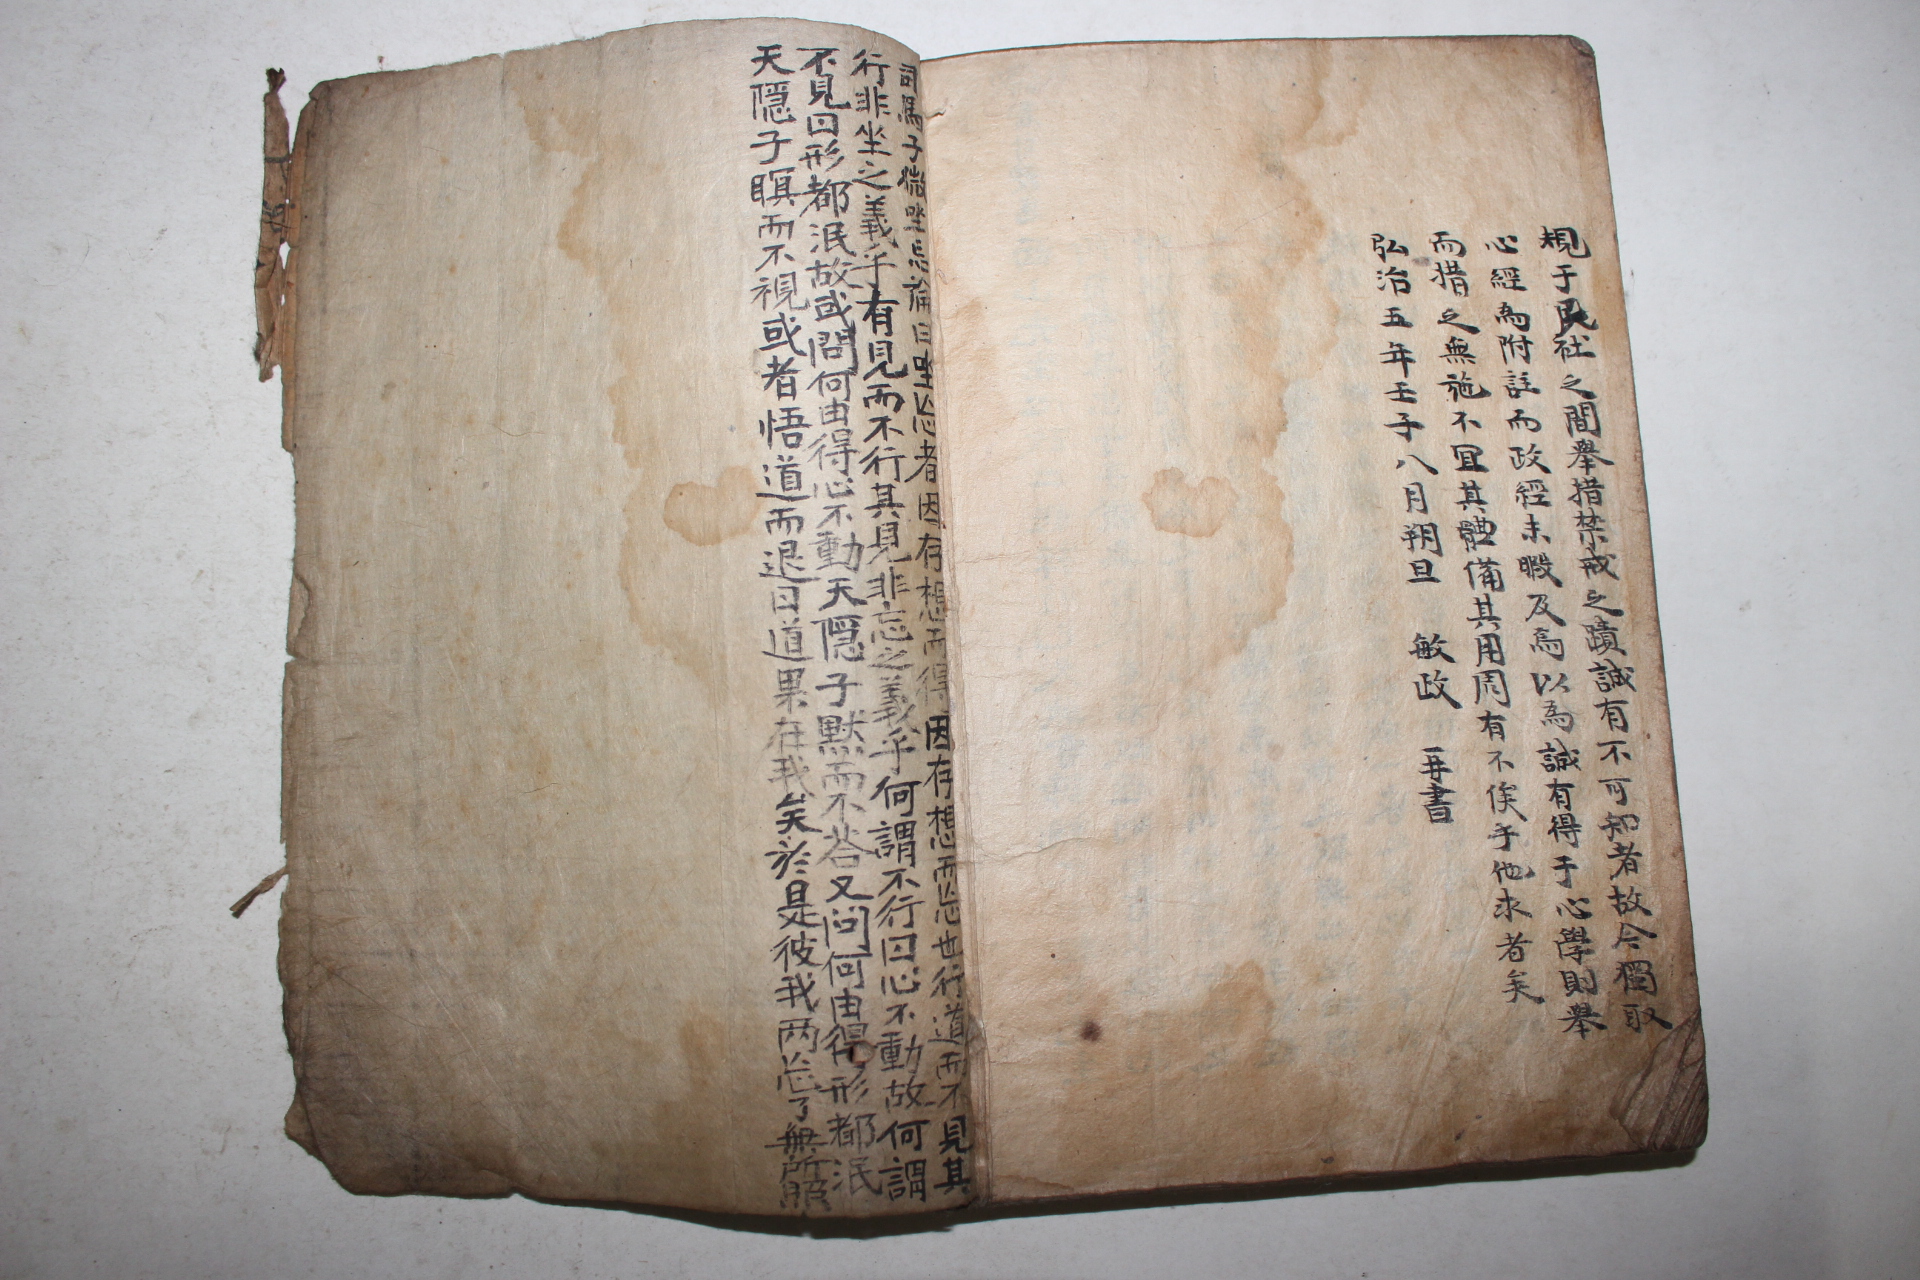 規于民社之間舉措禁戒之蹟誠有不可知者故今獨取
心經為附註而政經未暇及焉以為誠有得于心學則舉
而措之無施不冝其體備其用周有不俟乎他求者矣
弘治五年壬子八月朔旦 敏政 再書
司馬子微坐忘論曰坐忘者因存想而得因存想而忘也行道而不見其
行非坐之義乎有見而不行其見非忘之義乎何謂不行曰心不動故何謂
不見曰形都泯故或問何由得心不動天隠子默而不荅又问何由得形都泯
天隠子瞑而不視或者悟道而退曰道果在我矣於是彼我两忘了無所照